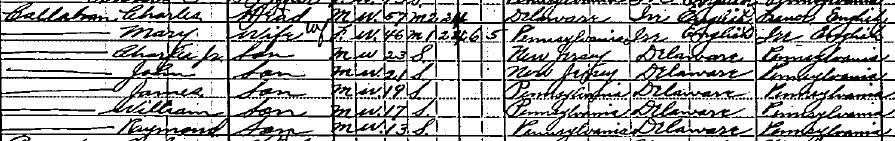 Callahan Charles Head M W 57 M2 24 Delaware Ir English France English
Mary Wife F W 46 M1 24 6 5 Pennsylvania Ir English Ir English
Charles Jr Son M W 23 S New Jersey Delaware Pennsylvania
John Son M W 21 S New Jersey Delaware Pennsylvania
James Son M W 19 S Pennsylvania Delaware Pennsylvania
William Son M W 17 S Pennsylvania Delaware Pennsylvania
Raymond Son M W 13 S Pennsylvania Delaware Pennsylvania